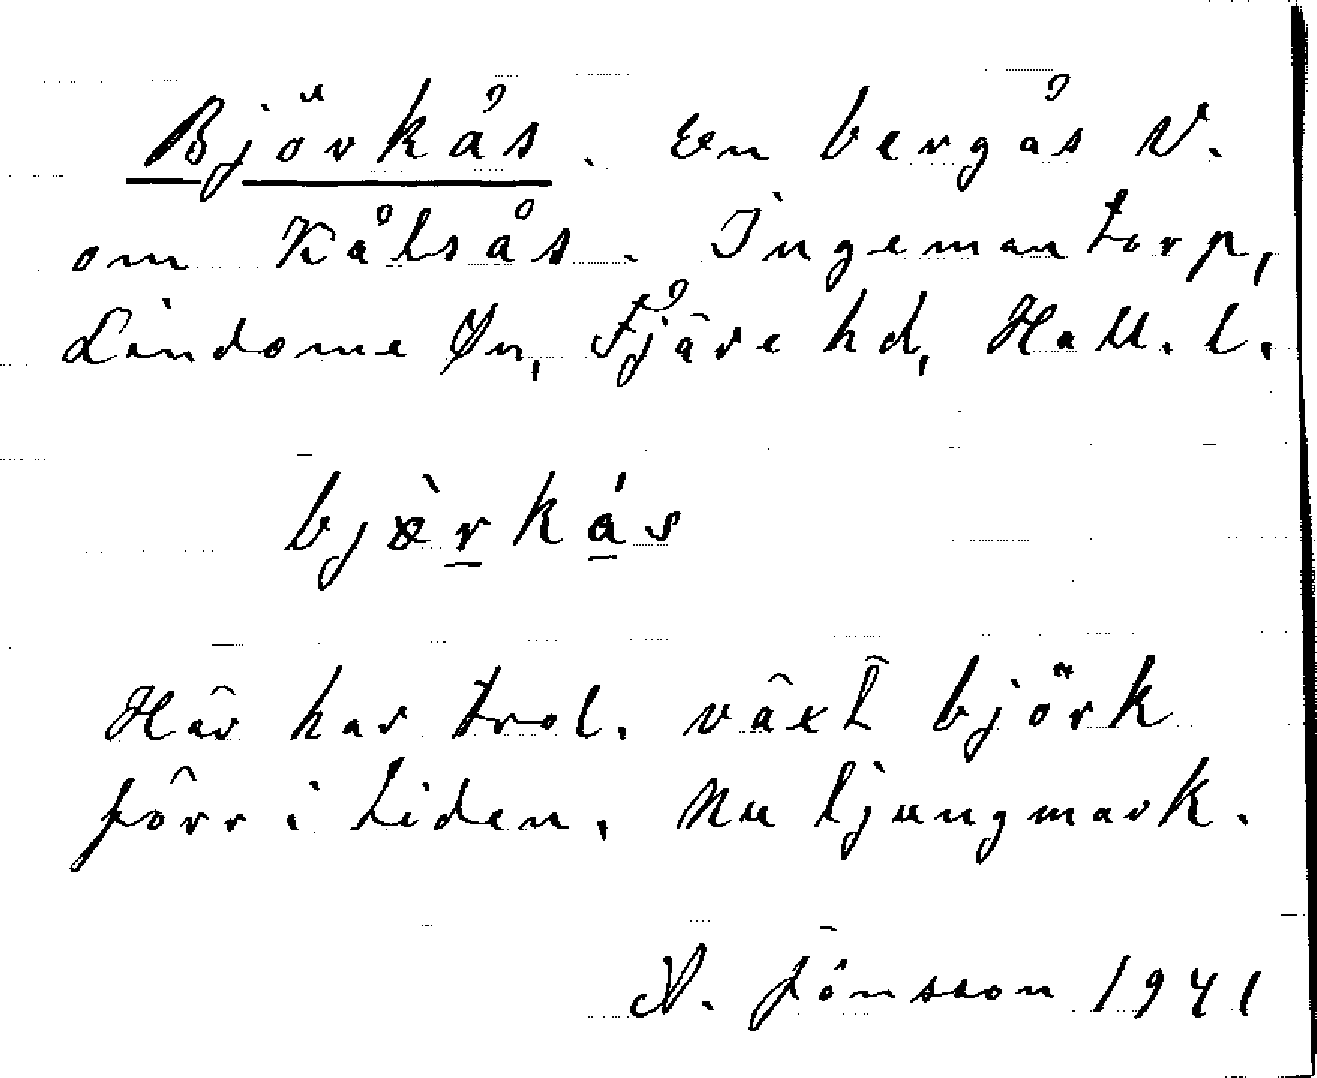 Björkås. En bergås V.
om Kålsås. Ingemantorp,
Lindome sn, Fjäre hd, Hall. l.
bjæ̀rkás
Här har trol. växt björk
förr i tiden. Nu ljungmark.
A. Jönsson 1941